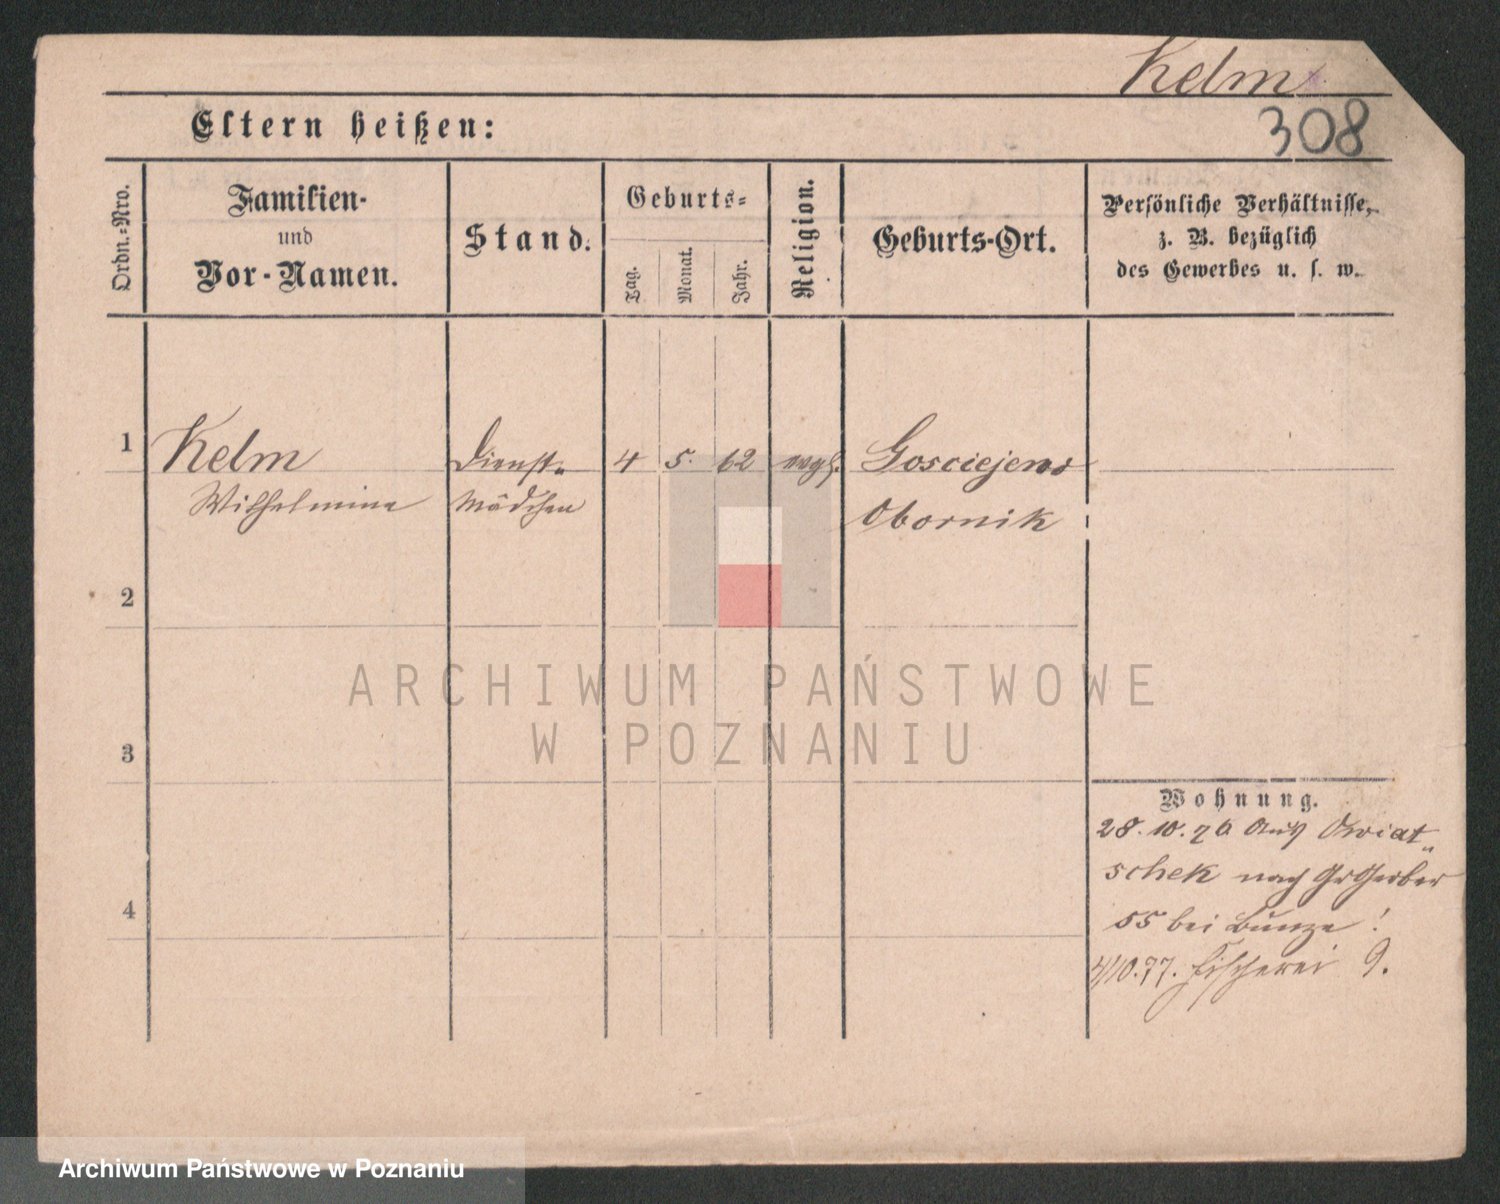 Kelm
308
Eltern heißen:
Ordn.-Nro.
Familien-
und
Vor-Namen.
Stand.
Geburts-
Tag.
Monat.
Jahr.
Religion.
Geburts-Ort.
Persönliche Verhältnisse,
z. B. bezüglich
des Gewerbes u. s. w.
1
Kelm
Dienst-
4
5.
62
evgl.
Gosciejewo
Wilhelmine
Mädchen
Obornik
2
ARCHIWUM PAŃSTWOWE
W POZNANIU
3
Wohnung.
28.10.76 aus Owiat-
schek nach Gr Gerber
4
55 bei Bunze!
4/10.77. Fischerei 9.
Archiwum Państwowe w Poznaniu